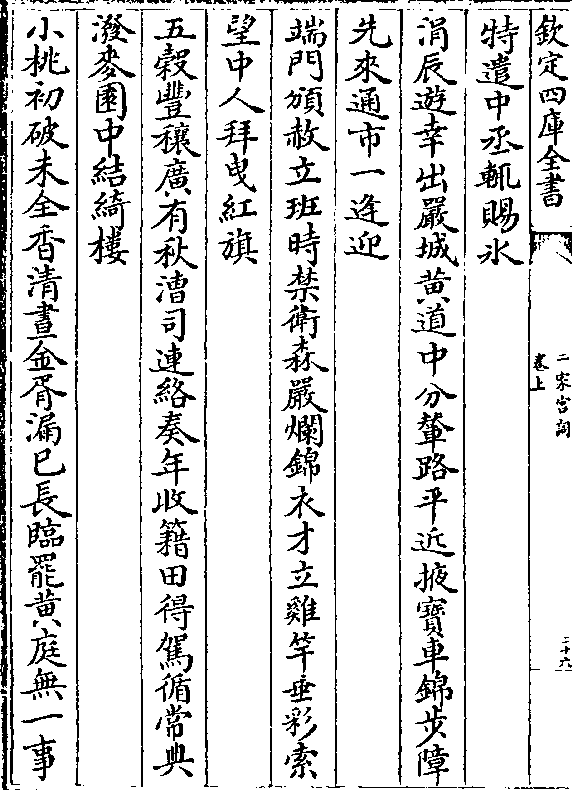 欽定四庫全書
二家宮詞
卷上
二十六
特遣中丞輒賜氷
涓辰遊幸出嚴城黄道中分輦路平近掖寶車錦步障
先來通市一逢迎
端門頒赦立班時禁衛森嚴爛錦衣才立雞竿垂彩索
望中人拜曵紅旗
五穀豐穰廣有秋漕司連絡奏年收籍田得駕循常典
潑麥園中結綺樓
小桃初破未全香清晝金胥漏已長臨罷黄庭無一事